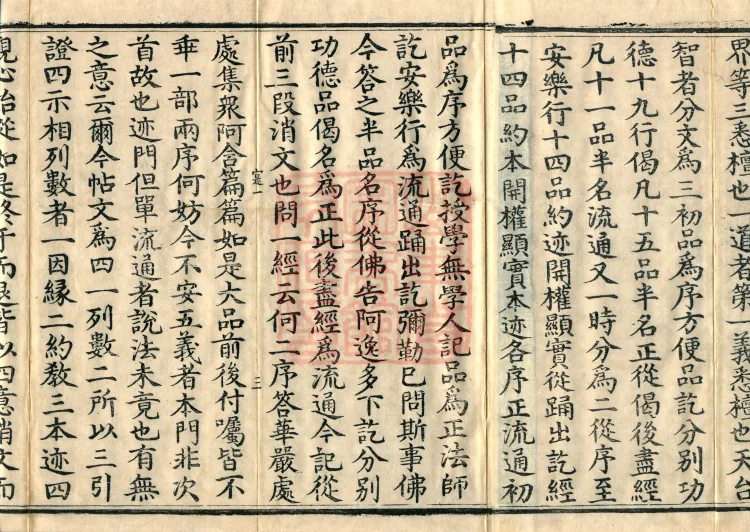 界等三悉檀也一道者第一義悉檀也天台
智者分文爲三初品爲序方便品訖分別功
德十九行偈凡十五品半名正從偈後盡經
凡十一品半名流通又一時分爲二從序至
安樂行十四品約迹開權顯實從踊出訖經
十四品約本開權顯實本迹各序正流通初
品爲序方便訖授學無學人記品爲正法師
訖安樂行爲流通踊出訖彌勒已問斯事佛
今答之半品名序從佛告阿逸多下訖分別
功德品偈名爲正此後盡經爲流通今記從
前三段消文也問一經云何二序答華嚴處
寔一 三
處集衆阿含篇篇如是大品前後付囑皆不
乖一部兩序何妨今不安五義者本門非次
首故也迹門但單流通者說法未竟也有無
之意云爾今帖文爲四一列數二所以三引
證四示相列數者一因緣二約教三本迹四
觀心始從如是終于而退皆以四意消文而